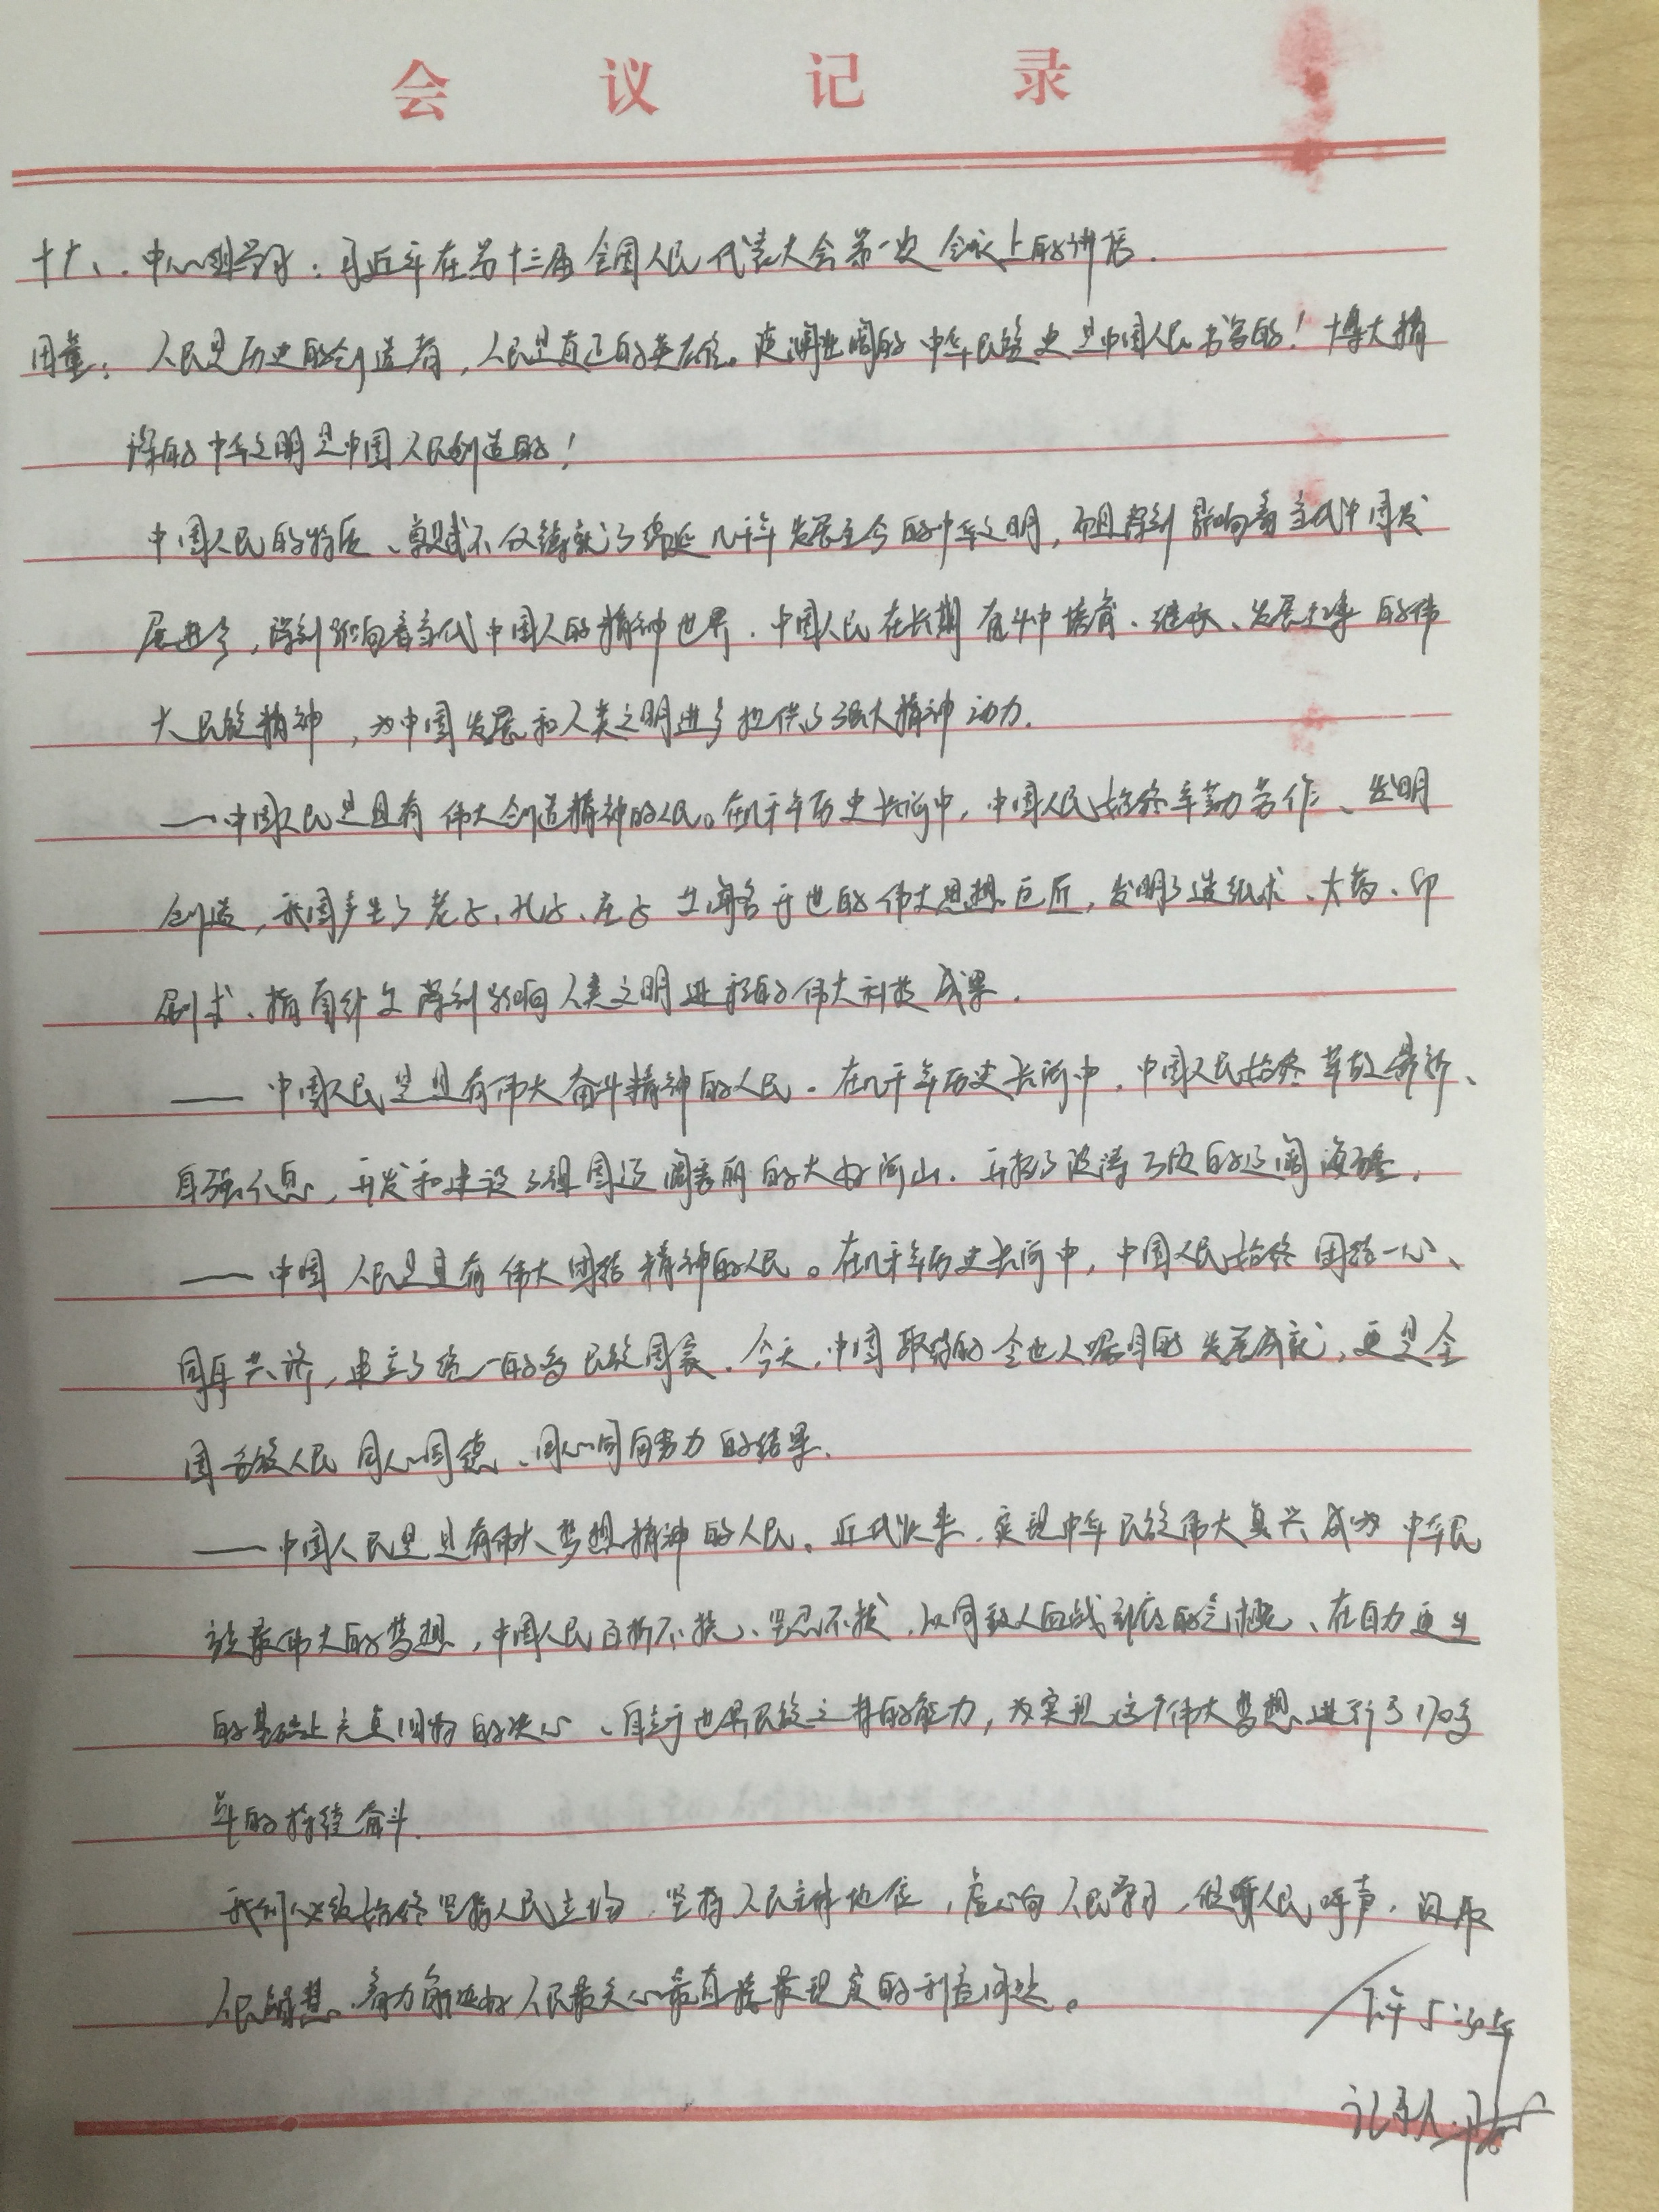 会议记录
十六、中心组学习：习近平在第十三届全国人民代表大会第一次会议上的讲话.
周量：人民是历史的创造者，人民是真正的英雄。波澜壮阔的中华民族史是中国人民书写的！博大精
深的中华文明是中国人民创造的！
中国人民的特质、禀赋不仅铸就了绵延几千年发展至今的中华文明，而且深刻影响着当代中国发
展进步，深刻影响着当代中国人的精神世界.中国人民在长期奋斗中培育、继承、发展起来的伟
大民族精神，为中国发展和人类文明进步提供了强大精神动力.
——中国人民是具有伟大创造精神的人民。在几千年历史长河中，中国人民始终辛勤劳作、发明
创造，我国产生了老子、孔子、庄子等闻名于世的伟大思想巨匠，发明了造纸术、火药、印
刷术、指南针等深刻影响人类文明进程的伟大科技成果.
——中国人民是具有伟大奋斗精神的人民.在几千年历史长河中，中国人民始终革故鼎新、
自强不息，开发和建设了祖国辽阔秀丽的大好河山.开拓了波涛万顷的辽阔海疆.
——中国人民是具有伟大团结精神的人民。在几千年历史长河中，中国人民始终团结一心、
同舟共济，建立了统一的多民族国家.今天，中国取得的令世人瞩目的发展成就，更是全
国各族人民同心同德、同心同向努力的结果.
——中国人民是具有伟大梦想精神的人民。近代以来，实现中华民族伟大复兴成为中华民
族最伟大的梦想，中国人民百折不挠、坚忍不拔，以同敌人血战到底的气概、在自力更生
的基础上光复旧物的决心、自立于世界民族之林的能力，为实现这个伟大梦想进行了170多
年的持续奋斗.
我们必须始终坚持人民立场，坚持人民主体地位，虚心向人民学习，倾听人民呼声，汲取
人民智慧。着力解决好人民最关心最直接最现实的利益问题。
记录人：